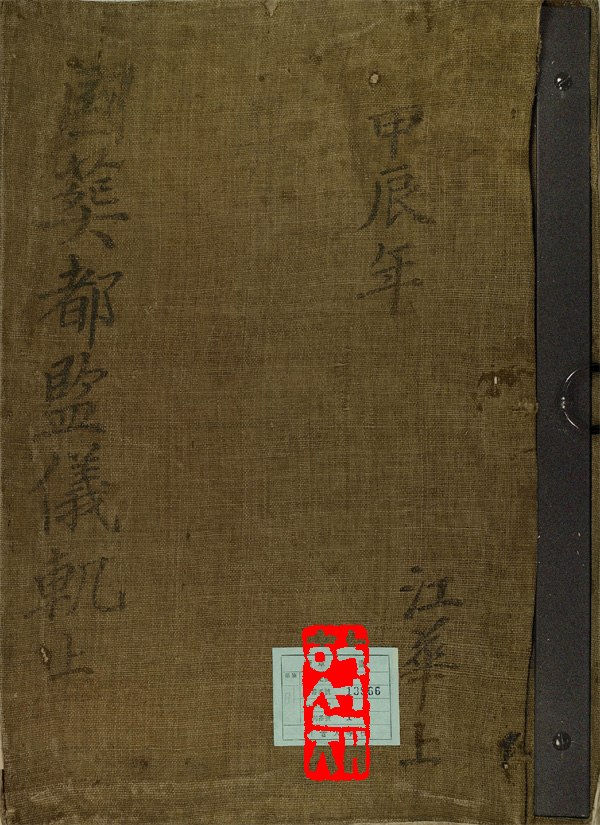 甲辰年
江華上
國葬都監儀軌上
13966